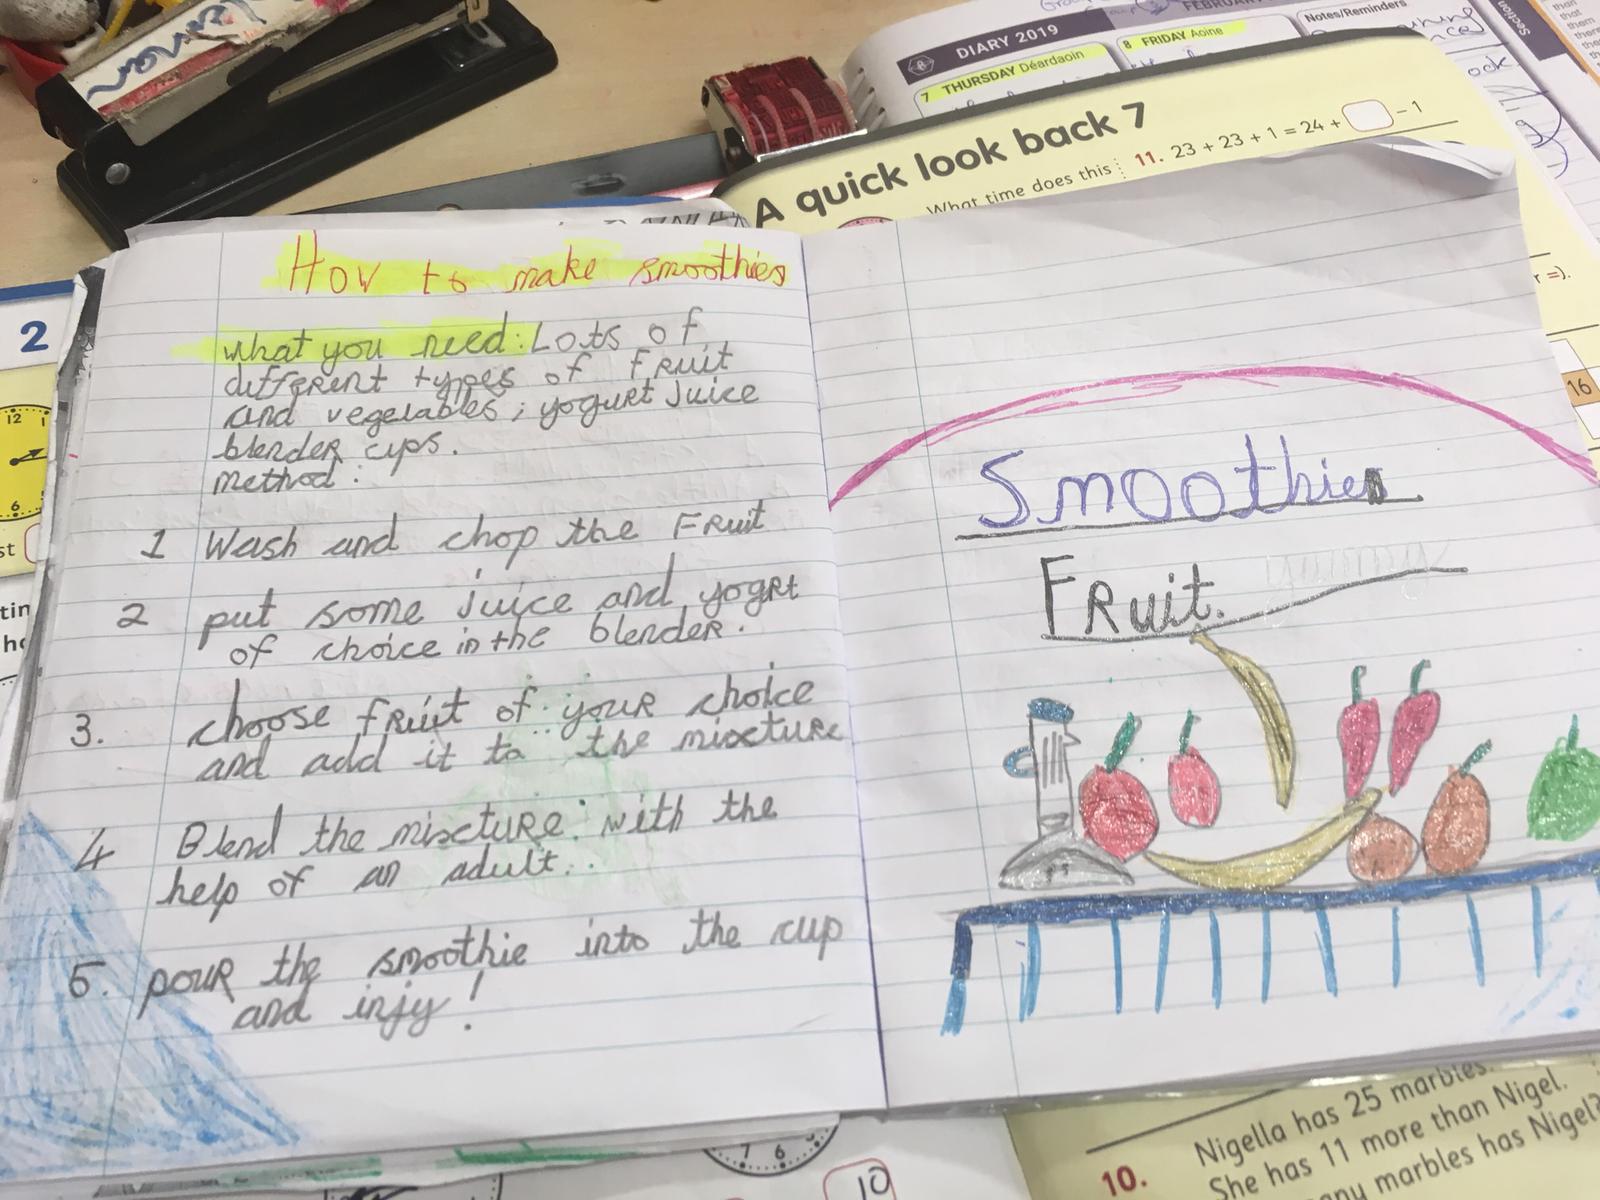 DIARY 2019
FEBRUARY
7 THURSDAY Déardaoin
8 FRIDAY Aoine
Notes/Reminders
Section
A quick look back 7
What time does this
11. 23 + 23 + 1 = 24 + - 1
2
12
6
16
How to make smoothies
what you need: Lots of
different types of fruit
and vegetables, yogurt juice
blender cups.
method:
1 Wash and chop the Fruit
2 put some juice and yogrt
of choice in the blender.
3. choose fruit of your choice
and add it to the mixture
4 Blend the mixture with the
help of an adult..
5. pour the smoothie into the cup
and injy!
Smoothies
Fruit.
yummy
7 6
10
Nigella has 25 marbles.
10. She has 11 more than Nigel.
marbles has Nigel?